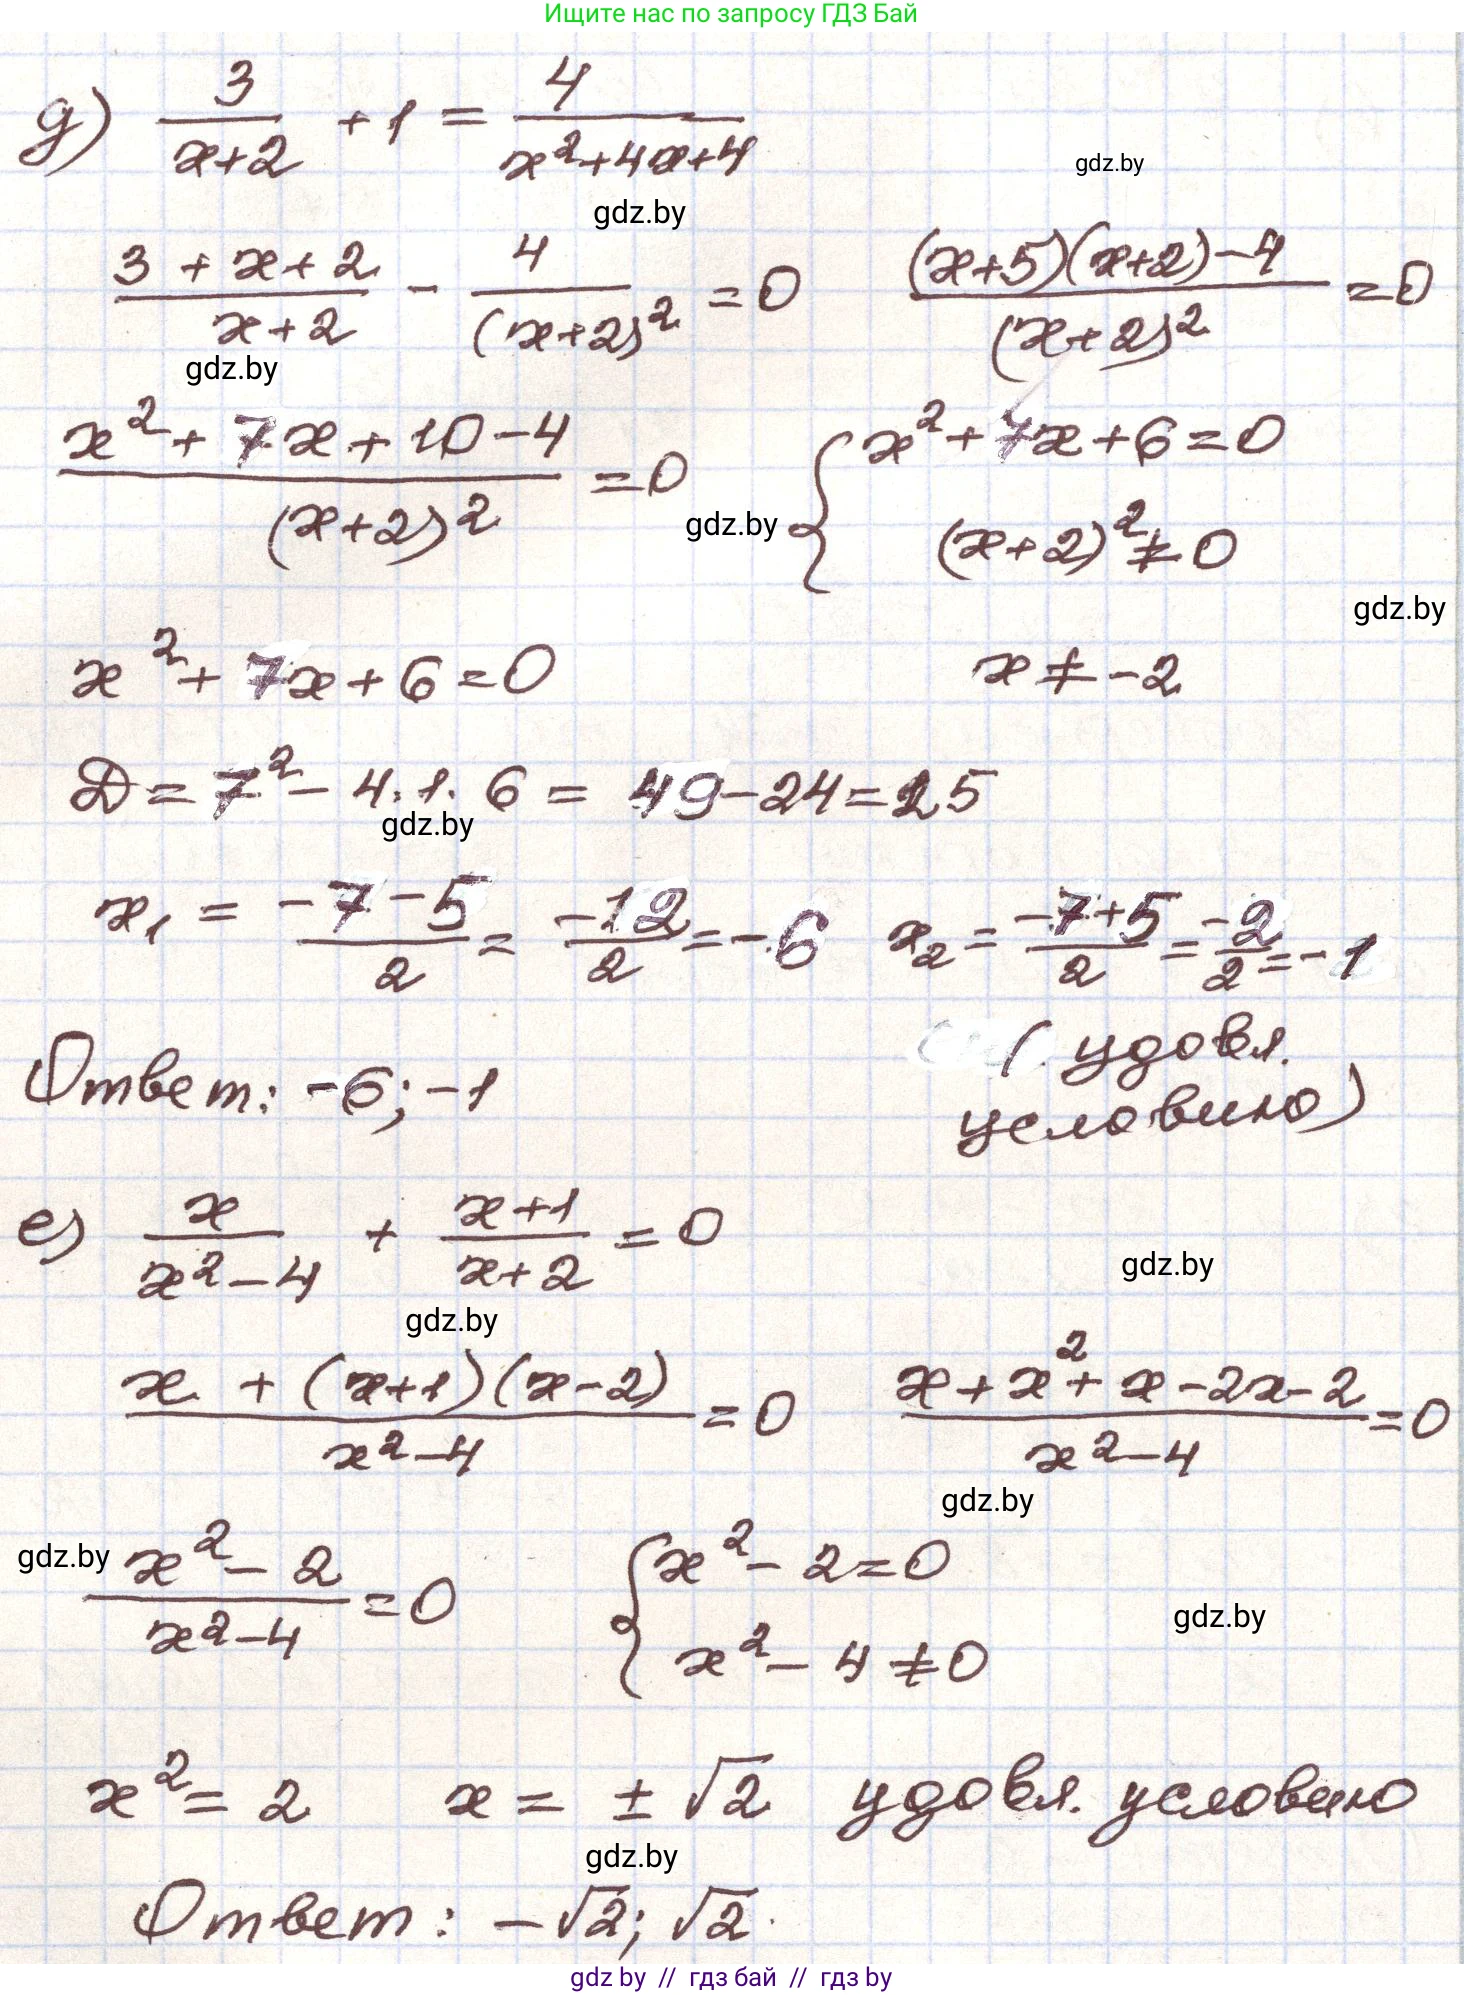 Ищите нас по запросу ГДЗ Бай
д) 3/(x+2) + 1 = 4/(x²+4x+4)
gdz.by
gdz.by
(3+x+2)/(x+2) - 4/(x+2)² = 0    ((x+5)(x+2)-4)/(x+2)² = 0
gdz.by
(x²+7x+10-4)/(x+2)² = 0    { x²+7x+6=0
gdz.by    (x+2)² ≠ 0
gdz.by
x²+7x+6=0    x ≠ -2
D = 7² - 4·1·6 = 49-24=25
gdz.by
x₁ = (-7-5)/2 = -12/2 = -6    x₂ = (-7+5)/2 = -2/2 = -1
(удовл.
условию)
Ответ: -6; -1
е) x/(x²-4) + (x+1)/(x+2) = 0
gdz.by
gdz.by
(x + (x+1)(x-2))/(x²-4) = 0    (x+x²+x-2x-2)/(x²-4) = 0
gdz.by
gdz.by
(x²-2)/(x²-4) = 0    { x²-2=0
x²-4 ≠ 0
gdz.by
x²=2    x = ±√2 удовл. условию
gdz.by
Ответ: -√2; √2.
gdz by // гдз бай // гдз by